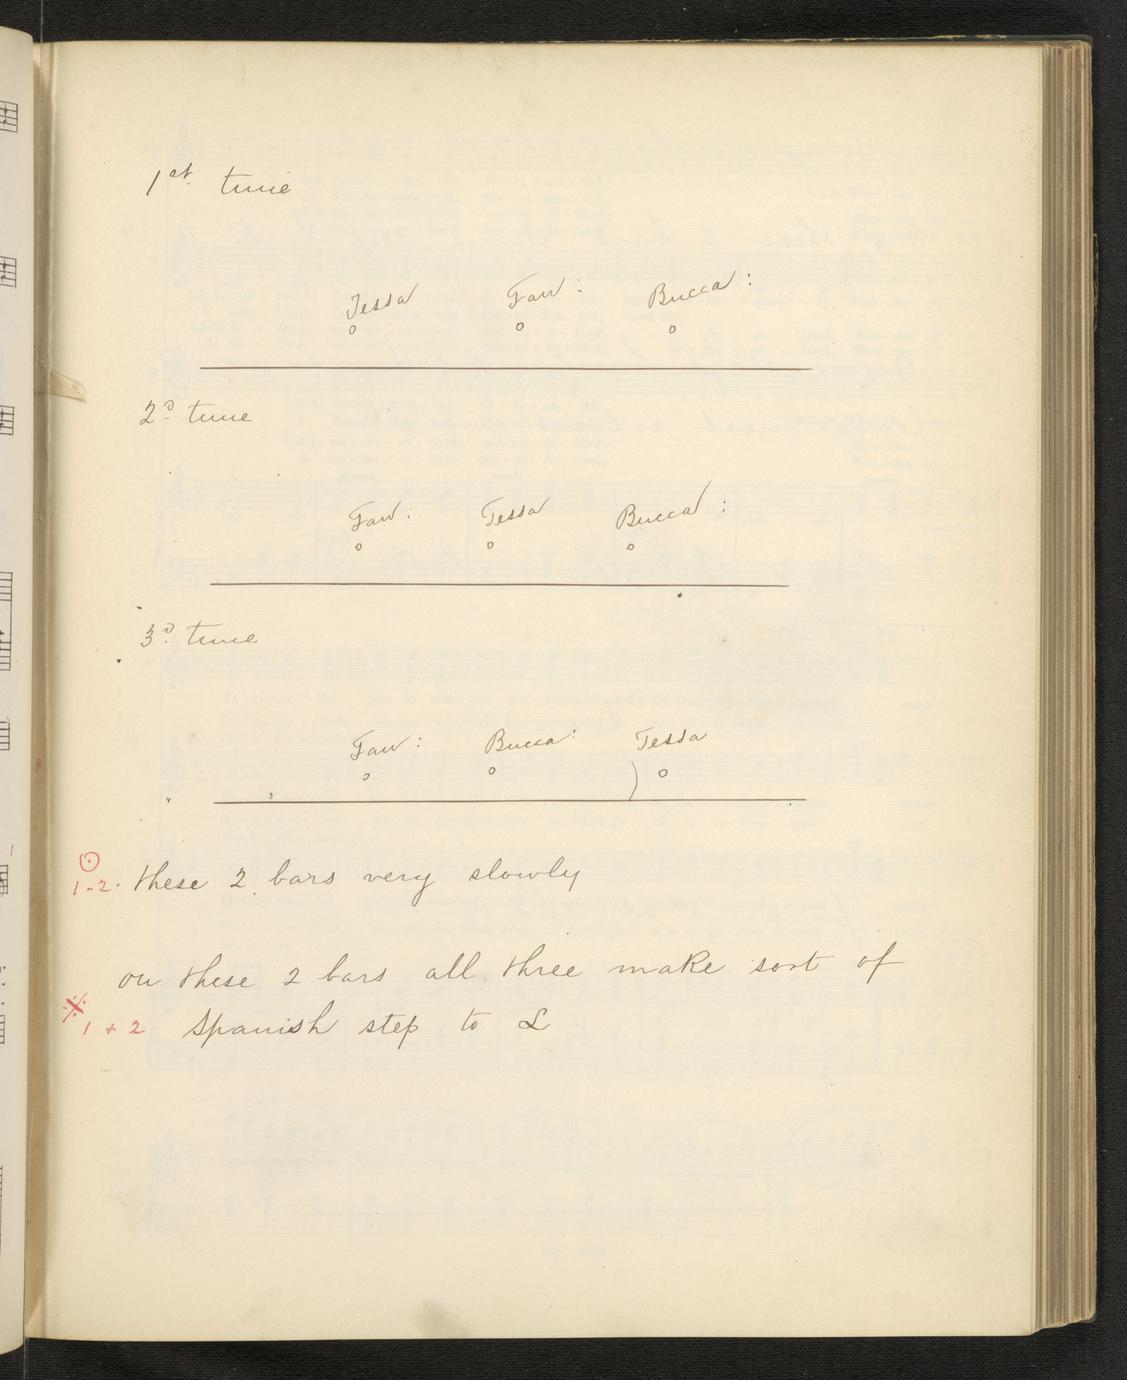 1st time
Tessa Fan: Bucca:
2d time
Fan: Tessa Bucca:
3d time
Fan: Bucca: Tessa
1-2. these 2 bars very slowly
on these 2 bars all three make sort of
1 + 2 Spanish step to L